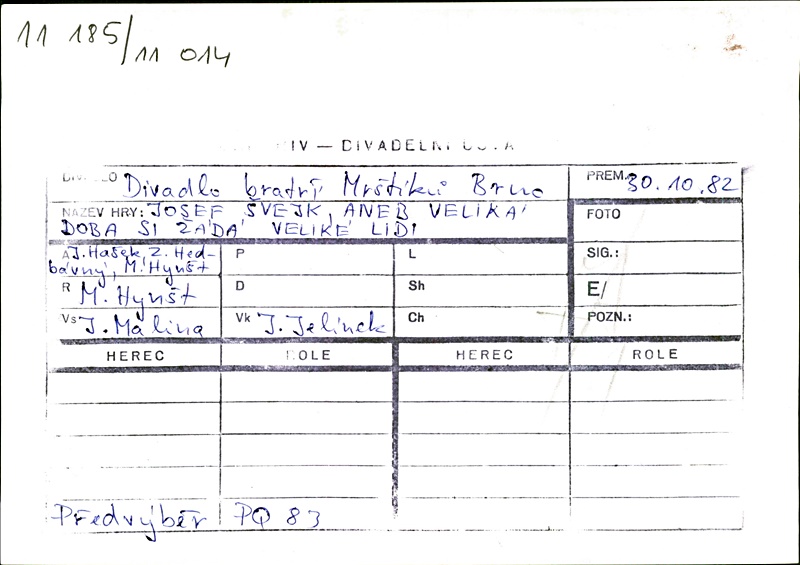 11 185/11 014
IV — DIVADELNÍ
Divadlo bratří Mrštíků Brno
PREM. 30.10.82
NÁZEV HRY: JOSEF ŠVEJK, ANEB VELIKÁ
DOBA SI ŽÁDÁ VELIKÉ LIDI
FOTO
A J. Hašek, Z. Hed-
bávný, M. Hynšt
P
L
SIG.:
R M. Hynšt
D
Sh
E/
Vs J. Malina
Vk J. Jelínek
Ch
POZN.:
HEREC ROLE HEREC ROLE
Předvýběr PQ 83